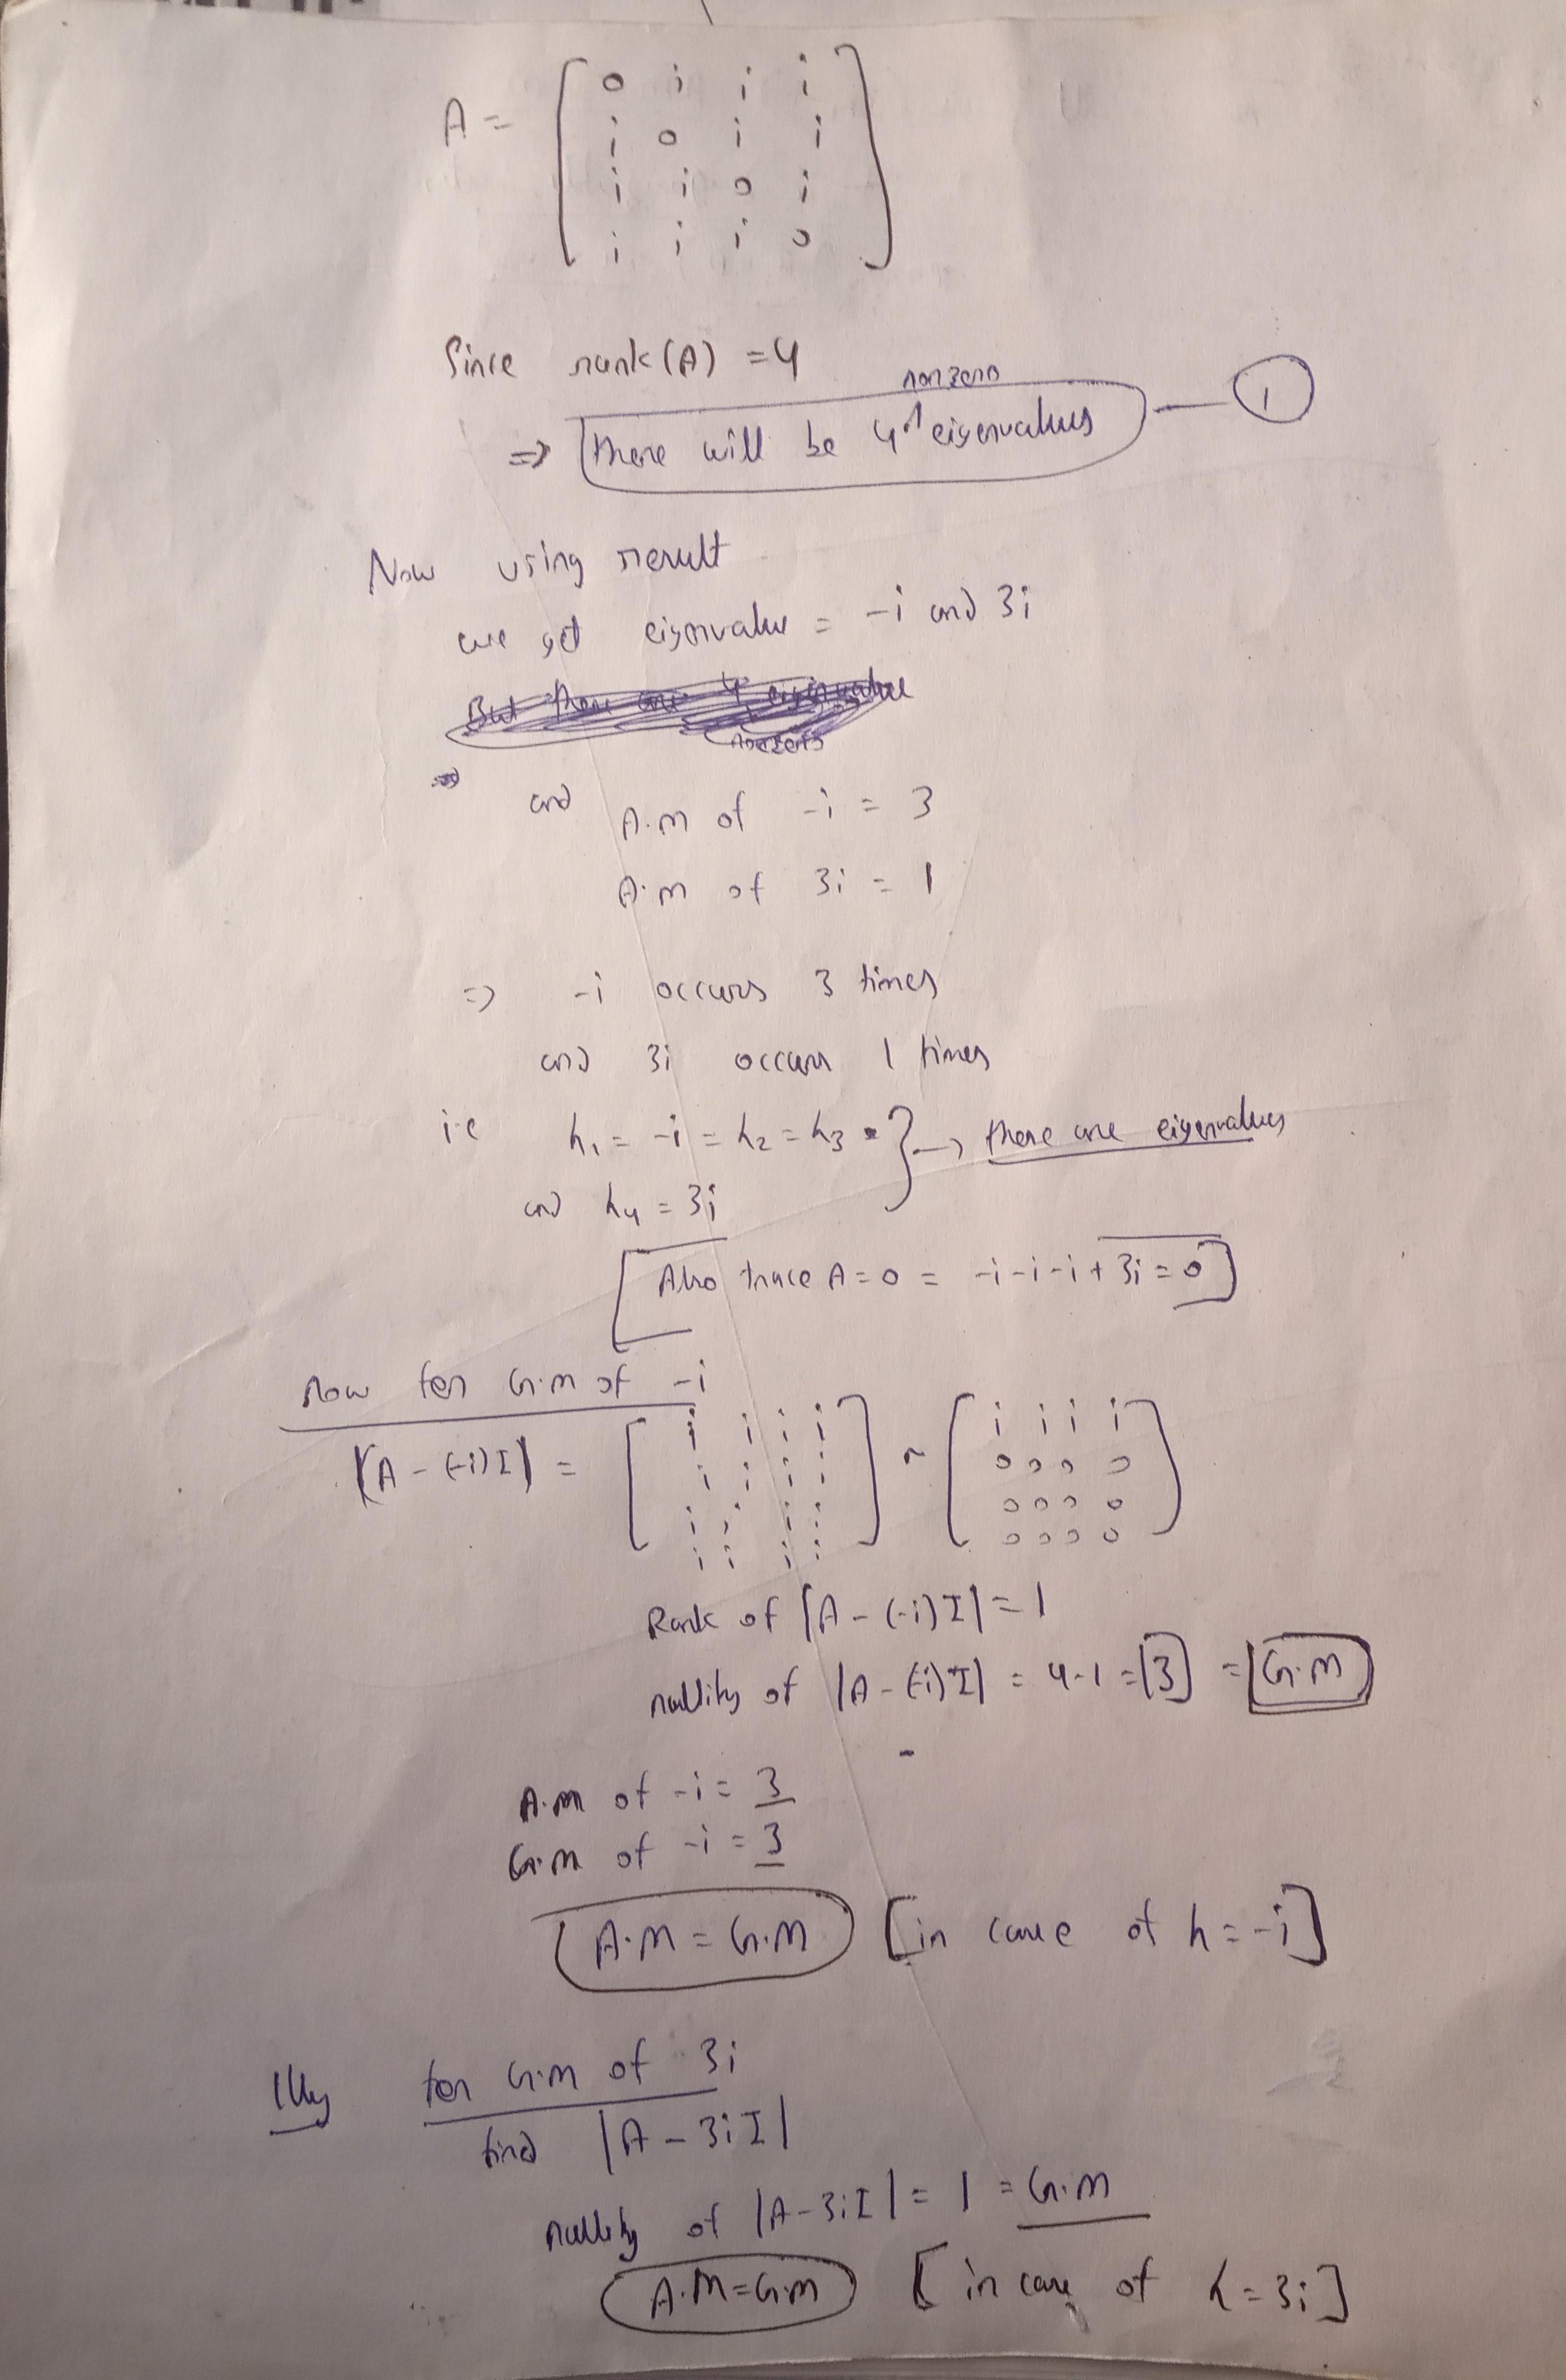 A = [ 0 i i i
i 0 i i
i i 0 i
i i i 0 ]
Since rank(A) = 4
nonzero
⇒ there will be 4 eigenvalues — 1
Now using result
we get eigenvalue = -i and 3i
But there are 4 eigenvalue
nonzero
⇒ and A.M of -i = 3
A.M of 3i = 1
⇒ -i occurs 3 times
and 3i occurs 1 times
i.e λ1 = -i = λ2 = λ3 } → there are eigenvalues
and λ4 = 3i
[Also trace A = 0 = -i-i-i+3i = 0]
Now for G.M of -i
|A - (-i)I| = [ i i i i ~ [ i i i i
i i i i 0 0 0 0
i i i i 0 0 0 0
i i i i ] 0 0 0 0 ]
Rank of |A - (-i)I| = 1
nullity of |A - (-i)I| = 4-1 = [3] = G.M
A.M of -i = 3
G.M of -i = 3
A.M = G.M [in case of λ = -i]
Illy for G.M of 3i
find |A - 3iI|
nullity of |A - 3iI| = 1 = G.M
A.M = G.M [in case of λ = 3i]